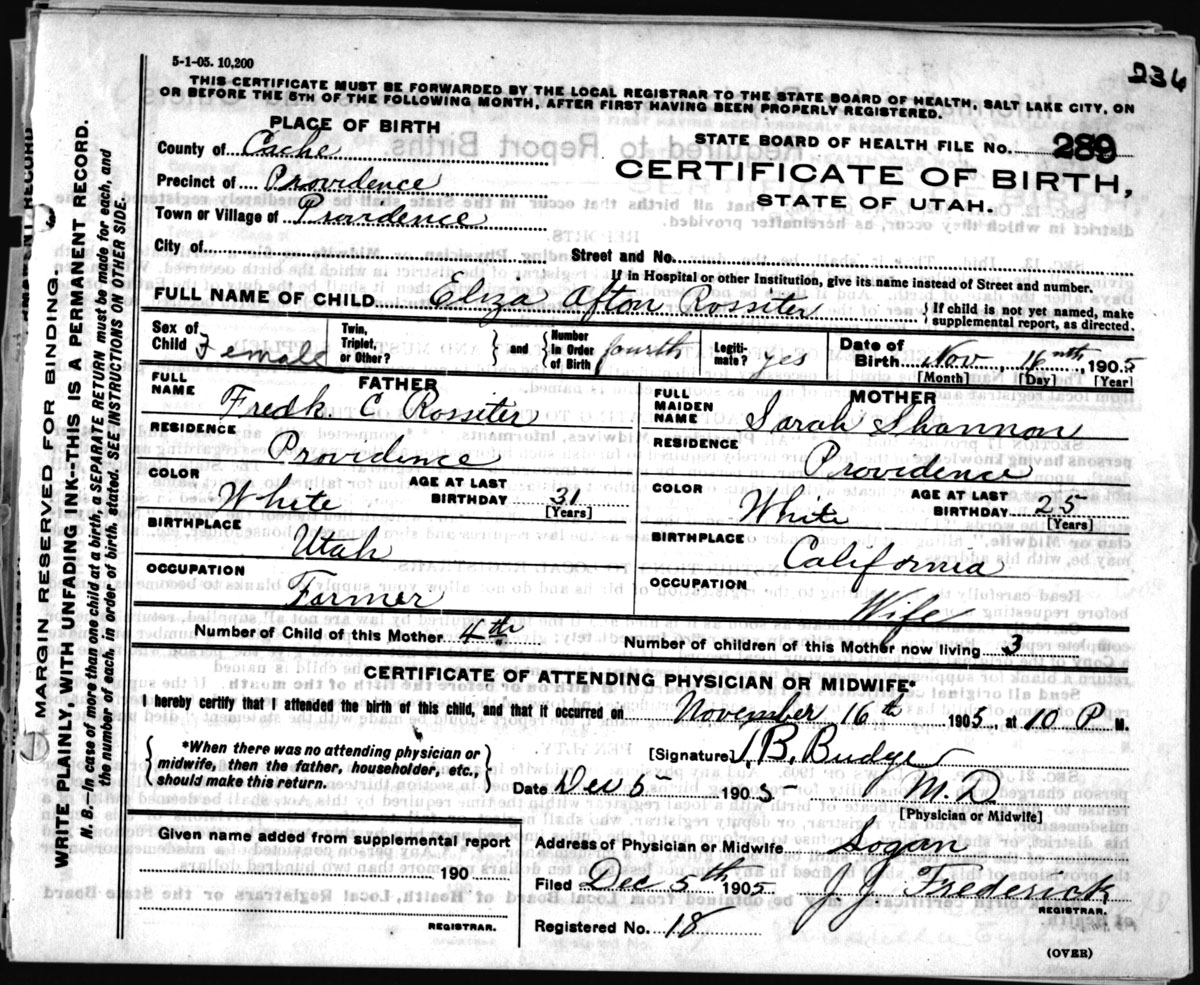 236
5-1-05. 10,200
THIS CERTIFICATE MUST BE FORWARDED BY THE LOCAL REGISTRAR TO THE STATE BOARD OF HEALTH, SALT LAKE CITY, ON
OR BEFORE THE 5TH OF THE FOLLOWING MONTH, AFTER FIRST HAVING BEEN PROPERLY REGISTERED.
PLACE OF BIRTH
STATE BOARD OF HEALTH FILE No. 289
County of Cache
CERTIFICATE OF BIRTH,
STATE OF UTAH.
Precinct of Providence
Town or Village of Providence
City of
Street and No.
If in Hospital or other Institution, give its name instead of Street and number.
FULL NAME OF CHILD Eliza Afton Rossiter
If child is not yet named, make
supplemental report, as directed.
Sex of Child Female
Twin, Triplet, or Other?
and Number in Order of Birth fourth
Legiti-mate? yes
Date of Birth Nov 16nth, 1905
[Month] [Day] [Year]
FATHER
FULL NAME Fredk C Rossiter
RESIDENCE
Providence
COLOR White
AGE AT LAST BIRTHDAY 31
[Years]
BIRTHPLACE
Utah
OCCUPATION
Farmer
MOTHER
FULL MAIDEN NAME Sarah Shannon
RESIDENCE
Providence
COLOR White
AGE AT LAST BIRTHDAY 25
[Years]
BIRTHPLACE
California
OCCUPATION
Wife
Number of Child of this Mother 4th
Number of children of this Mother now living 3
CERTIFICATE OF ATTENDING PHYSICIAN OR MIDWIFE*
I hereby certify that I attended the birth of this child, and that it occurred on November 16th 1905, at 10 P M.
*When there was no attending physician or
midwife, then the father, householder, etc.,
should make this return.
[Signature] B. Budge
Date Dec 5 1905 M.D
[Physician or Midwife]
Given name added from supplemental report
190
REGISTRAR.
Address of Physician or Midwife Logan
Filed Dec 5th 1905 J J Frederick
REGISTRAR.
Registered No. 18
(OVER)
MARGIN RESERVED FOR BINDING.
WRITE PLAINLY WITH UNFADING INK--THIS IS A PERMANENT RECORD.
N. B.--In case of more than one child at a birth, a SEPARATE RETURN must be made for each, and
the number of each, in order of birth, stated. SEE INSTRUCTIONS ON OTHER SIDE.